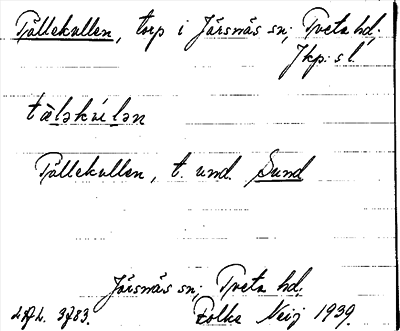 Pällekullen, torp i Järsnäs sn; Tveta hd;
Jkp: s l.
tä̀ləkúlən
Pällekullen, t. und. Sund
Järsnäs sn; Tveta hd.
3783. Folke Neij 1939.